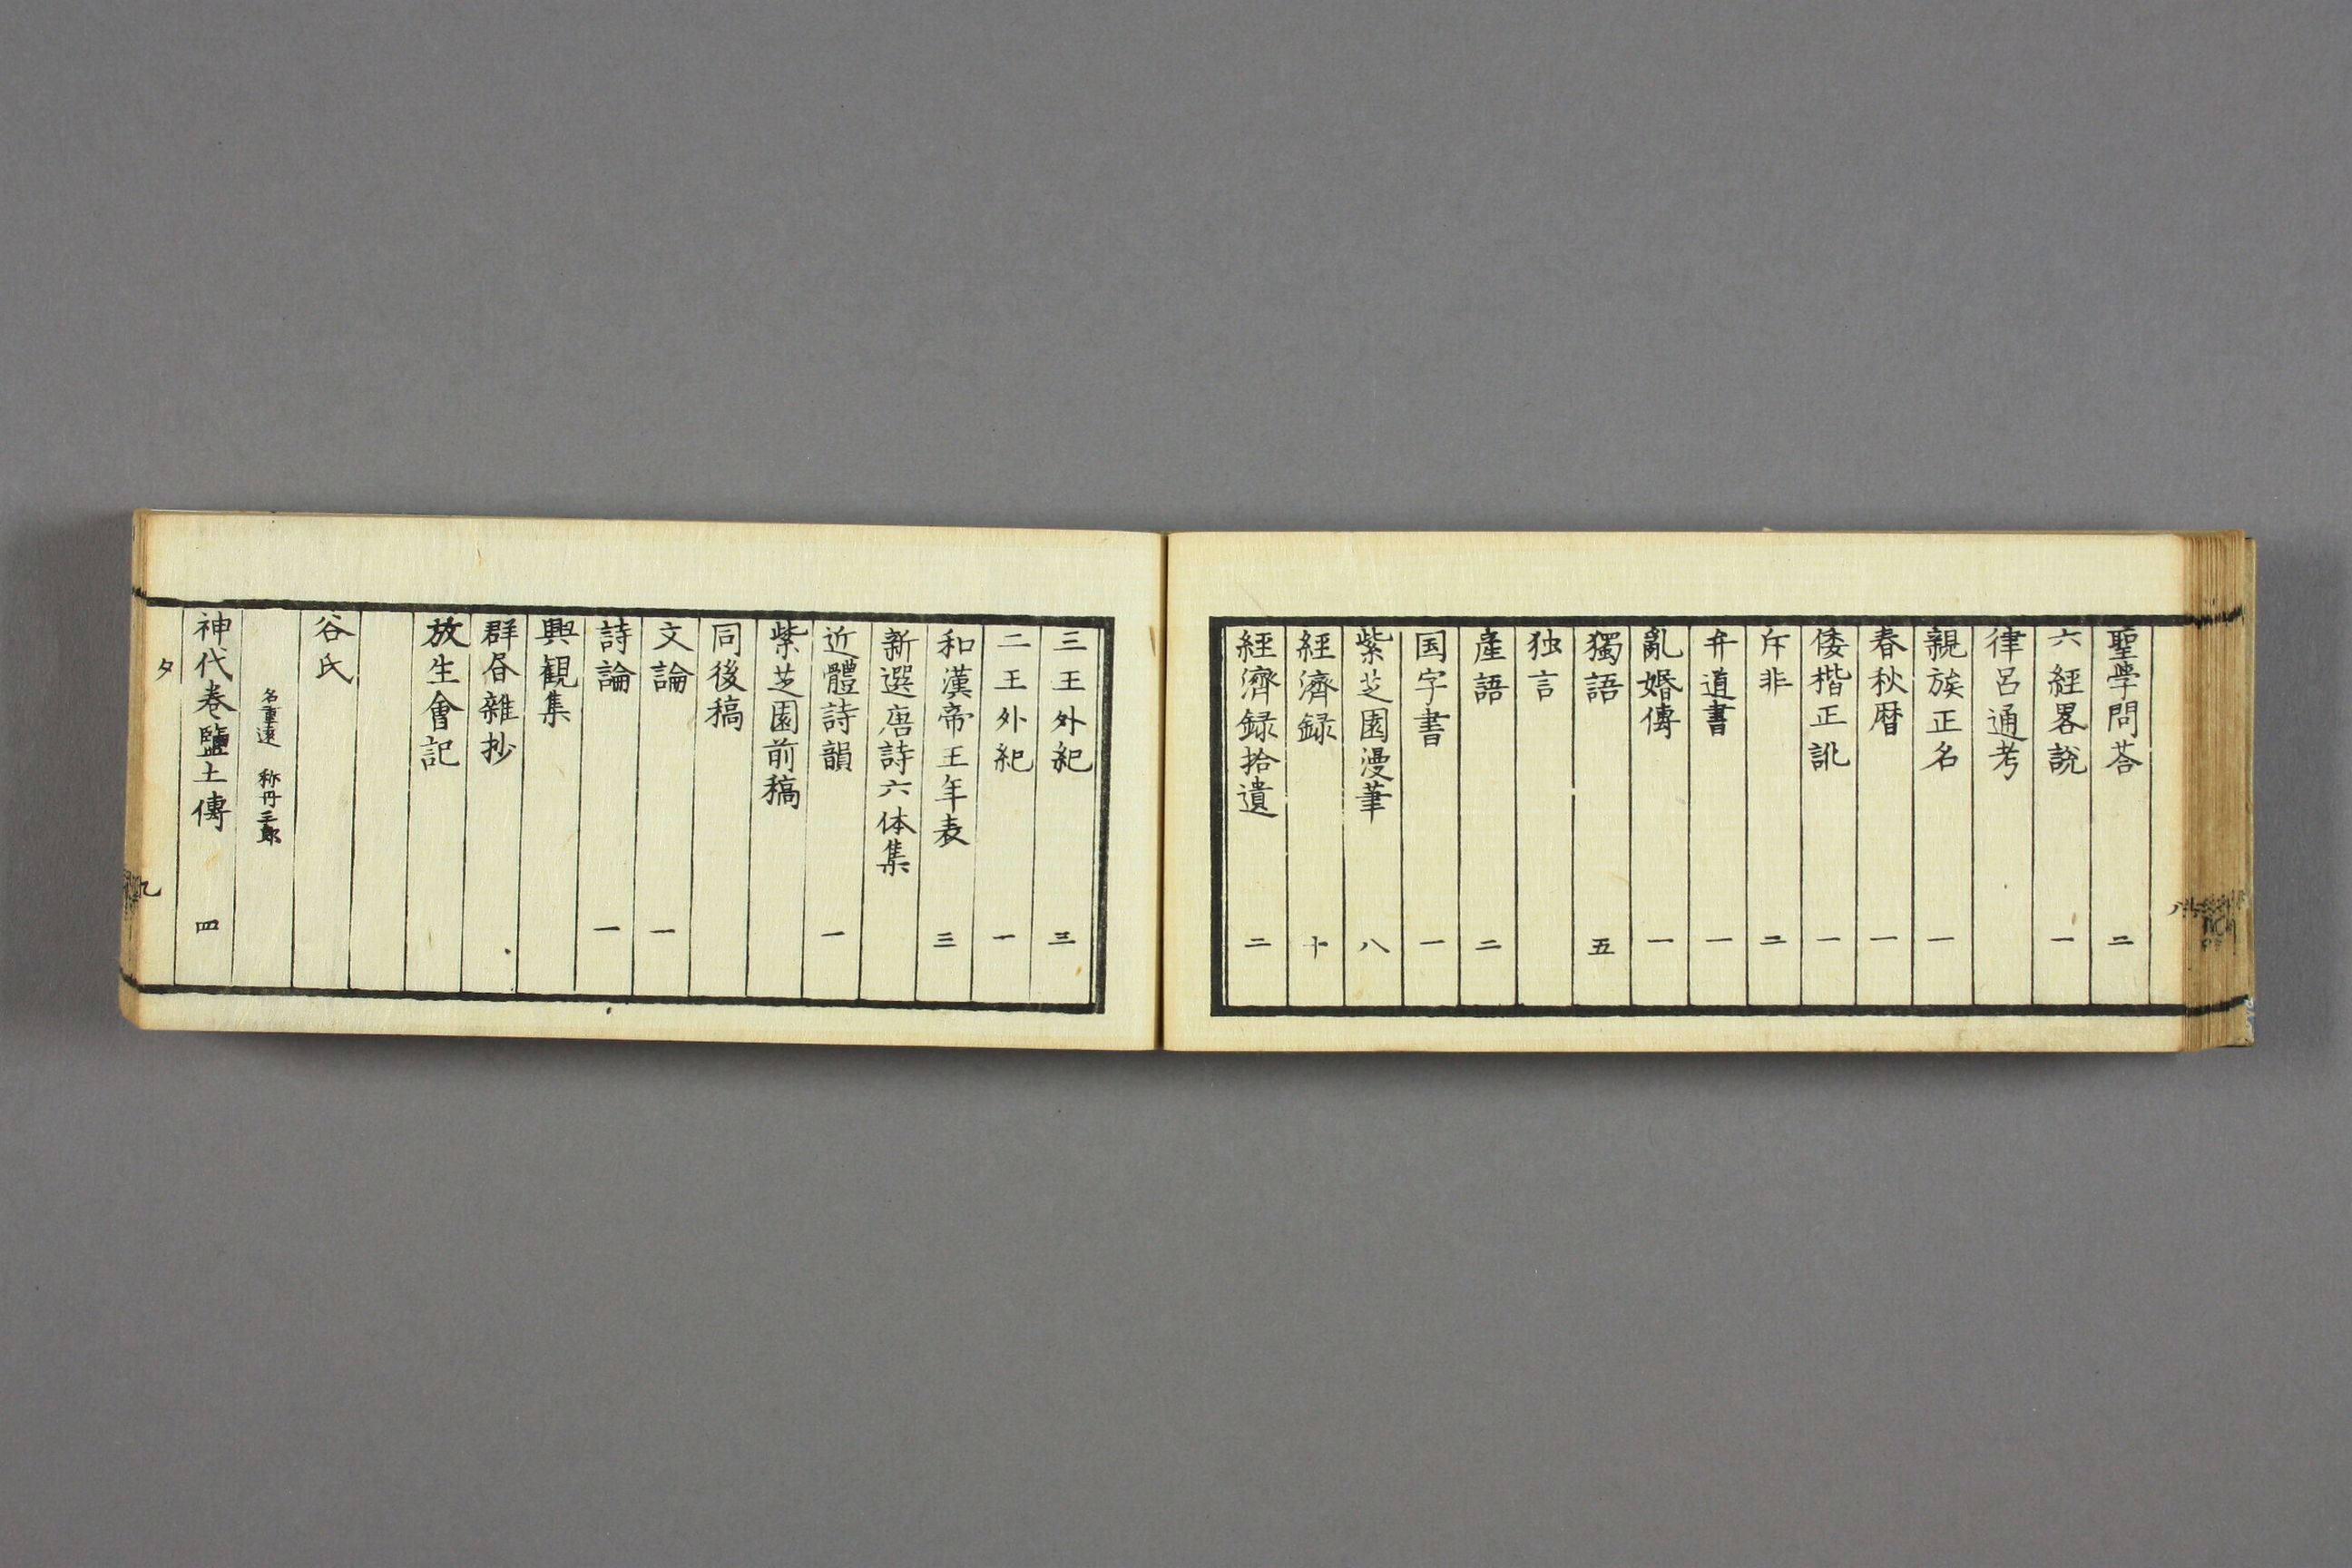 聖學問荅 二
六經畧説 一
律呂通考
親族正名 一
春秋暦 一
倭楷正訛 一
斥非 二
弁道書 一
亂婚傳 一
獨語 五
独言
産語 二
国字書 一
紫芝園漫筆 八
經濟録 十
經濟録拾遺 二
三王外紀 三
二王外紀 一
和漢帝王年表 三
新選唐詩六体集
近體詩韻 一
紫芝園前稿
同後稿
文論 一
詩論 一
興観集
群昏雜抄
放生會記
谷氏
名重遠 称丹三郎
神代巻鹽土傳 四
タ
九